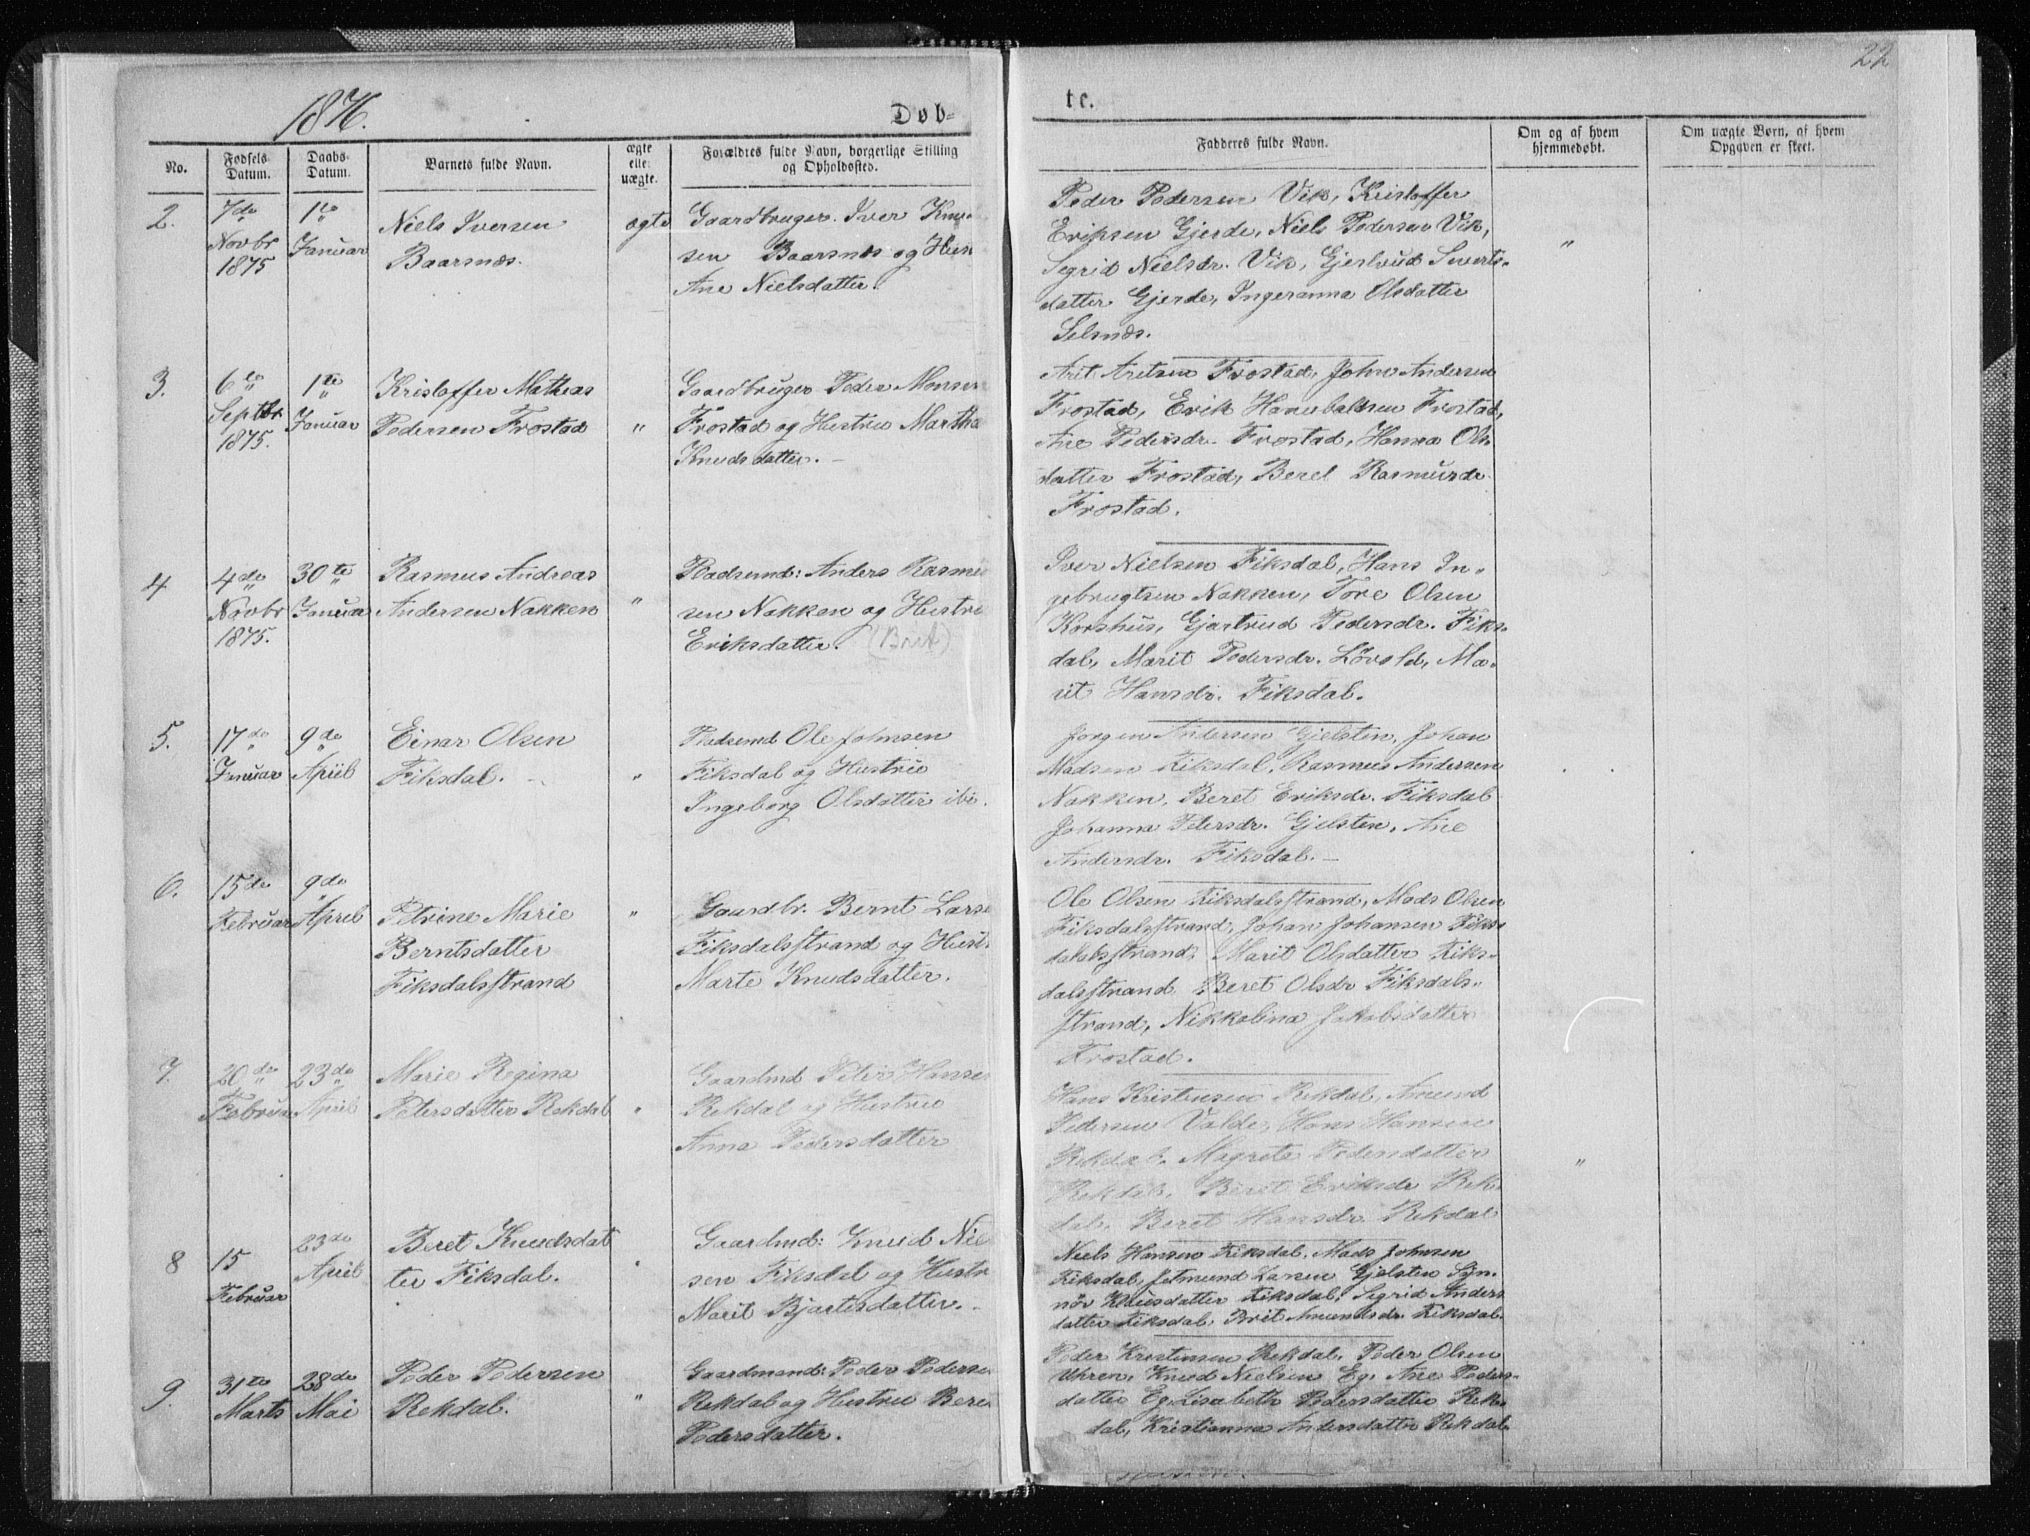 22
1876.
Døb-
te.
No.
Fødsels
Datum.
Daabs
Datum.
Barnets fulde Navn.
ægte
eller
uægte.
Forældres fulde Navn, borgerlige Stilling
og Opholdssted.
Fadderes fulde Navn.
Om og af hvem
hjemmedøbt.
Om uægte Børn, af hvem
Opgaven er skeet.
2.
7de
Novbr
1875
1te
Januar
Niels Iversen
Baarsnæs.
ægte
Gaardbruger. Iver Knu-
sen Baarsnæs og Hust
Ane Nielsdatter.
Peder Pedersen Vik, Kristoffer
Eriksen Gjerde, Niels Pedersen Vik,
Segrid Nielsdr. Vik, Gjertrud Siverts-
datter Gjerde, Ingeranna Olsdatter
Selsnæs.
"
3.
6te
Septbr
1875.
1te
Januar
Kristoffer Mathias
Pedersen Frostad
"
Gaardbruger Peder Monsen
Frostad og Hustru Martha
Knudsdatter. -
Arit Aretsen Frostad, John Andersen
Frostad, Erik Hanibalsen Frostad,
Ane Pedersdr. Frostad, Hanna Ols-
datter Frostad, Beret Rasmusdr
Frostad.
4
4de
Novbr
1875.
30te
Januar
Rasmus Andreas
Andersen Nakken
"
Pladsmd: Anders Rasmu
sen Nakken og Hustru
Eriksdatter. (Brit)
Iver Nielsen Fiksdal, Hans In-
gebrugtsen Nakken, Tore Olsen
Korshus, Gjertrud Pedersdr. Fiks-
dal, Marit Pedersdr. Løvold, Ma-
rit Hansdr. Fiksdal.
5.
17de
Januar
9de
April
Einar Olsen
Fiksdal.
"
Pladsmd Ole Johnsen
Fiksdal og Hustru
Ingeborg Olsdatter ibi.
Jørgen Andersen Gjelsten, Johan
Madsen Fiksdal, Rasmus Andersen
Nakken, Beret Eriksdr. Fiksdal
Johanna Petersdr. Gjelsten, Ane
Andersdr. Fiksdal. -
6.
15de
Februar
9de
April
Petrine Marie
Berntsdatter
Fiksdalsstrand
"
Gaardbr. Bernt Larse
Fiksdalsstrand og Hust
Marte Knudsdatter.
Ole Olsen Fiksdalsstrand, Mads Olsen
Fiksdalsstrand, Johan Johansen Fiks-
dalsstrand, Marit Olsdatter Fiks-
dalsstrand, Beret Olsdr Fiksdals-
strand, Nikkolina Jakobsdatter
Frostad.
7.
20de
Februar
23de
April
Marie Regina
Petersdatter Rekdal
"
Gaardmd Peter Hansen
Rekdal og Hustru
Anna Pedersdatter
Hans Kristensen Rekdal, Amund
Pedersen Valde, Hans Hansen
Rekdal, Magrete Pedersdatter
Rekdal, Beret Eriksdr Rek-
dal, Beret Hansdr Rekdal
"
8
15
Februar
23de
April
Beret Knudsdat
ter Fiksdal.
"
Gaardmd: Knud Niel
sen Fiksdal og Hustr
Marit Bjartesdatter. -
Niels Hansen Fiksdal, Mads Johnsen
Fiksdal, Jetmund Larsen Gjelsten Syn-
nøv Knudsdatter Fiksdal, Sigrid Anders
datter Fiksdal, Brit Amundsdr Fiksdal.
9.
31te
Marts
28de
Mai
Peder Pedersen
Rekdal.
"
Gaardmand: Peder Pederse
Rekdal og Hustru Bere
Pedersdatter.
Peder Kristensen Rekdal, Peder Olsen
Uhren, Knud Nielsen Eg, Ane Peders-
datter Eg, Lisabeth Pedersdatter Rek-
dal, Kristianna Andersdatter Rekdal